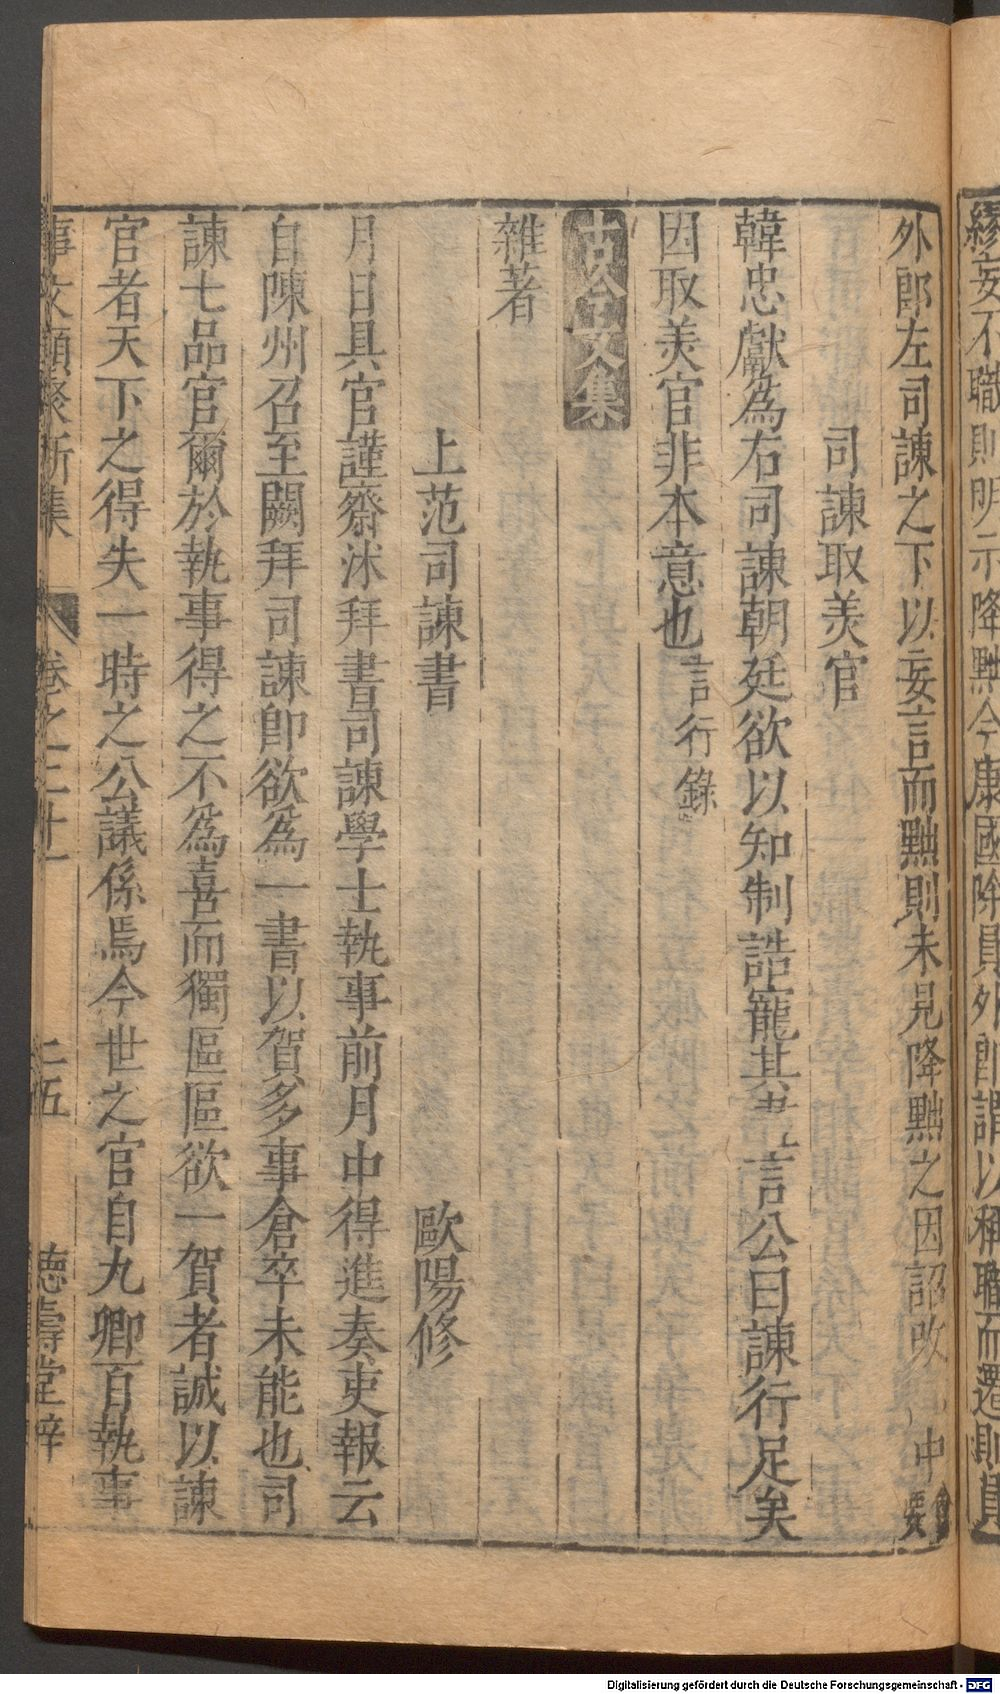 縁妄不職則明示降黜今康國除員外郎謂以稱職而遷則員
外郎左司諫之下以妄言而黜則未見降黜之因詔改中會要
司諫取美官
韓忠獻為右司諫朝廷欲以知制誥寵其言公曰諫行足矣
因取美官非本意也言行錄
古今文集
雜著
上范司諫書 歐陽修
月日具官謹齋沐拜書司諫學士執事前月中得進奏吏報云
自陳州召至闕拜司諫即欲為一書以賀多事倉卒未能也司
諫七品官爾於執事得之不為喜而獨區區欲一賀者誠以諫
官者天下之得失一時之公議係焉今世之官自九卿百執事
事文類聚新集 卷之二十一 二五 德壽堂梓
Digitalisierung gefördert durch die Deutsche Forschungsgemeinschaft - DFG